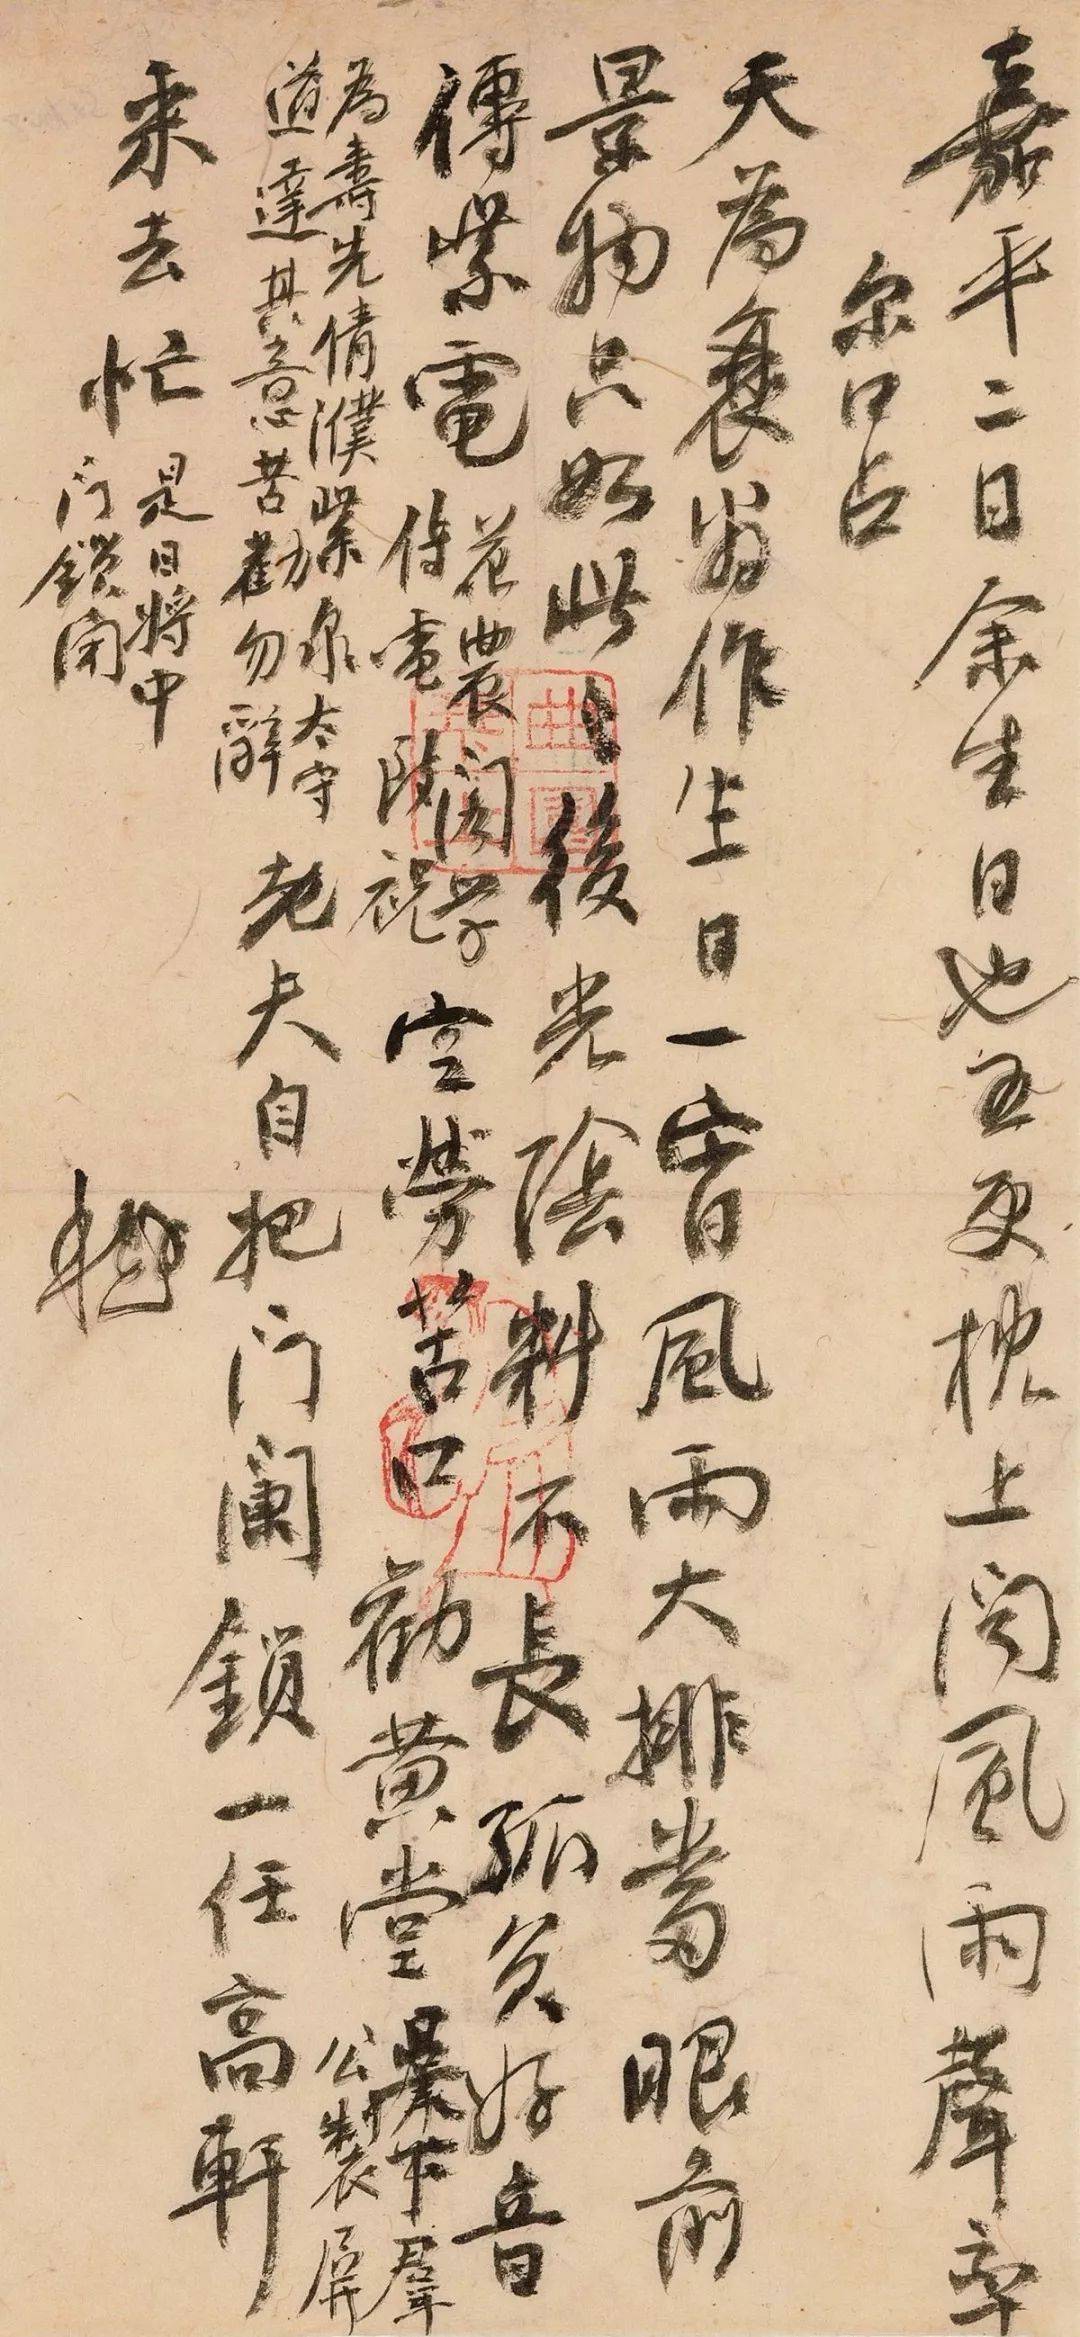 嘉平二日余生日也五更枕上闻風雨聲率
尔口占
天為衰翁作生日一宵風雨大排當眼前
景物只如此此後光陰料不長孤負好音
傳紫電
花農閣學
侍電致祝
空勞苦口勸黄堂
杲下羣
公製屏
為壽先倩濮紫泉太守
道達其意苦勸勿辭
老夫自把門闌鎖一任高軒
来去忙
是日將中
門鎖闭